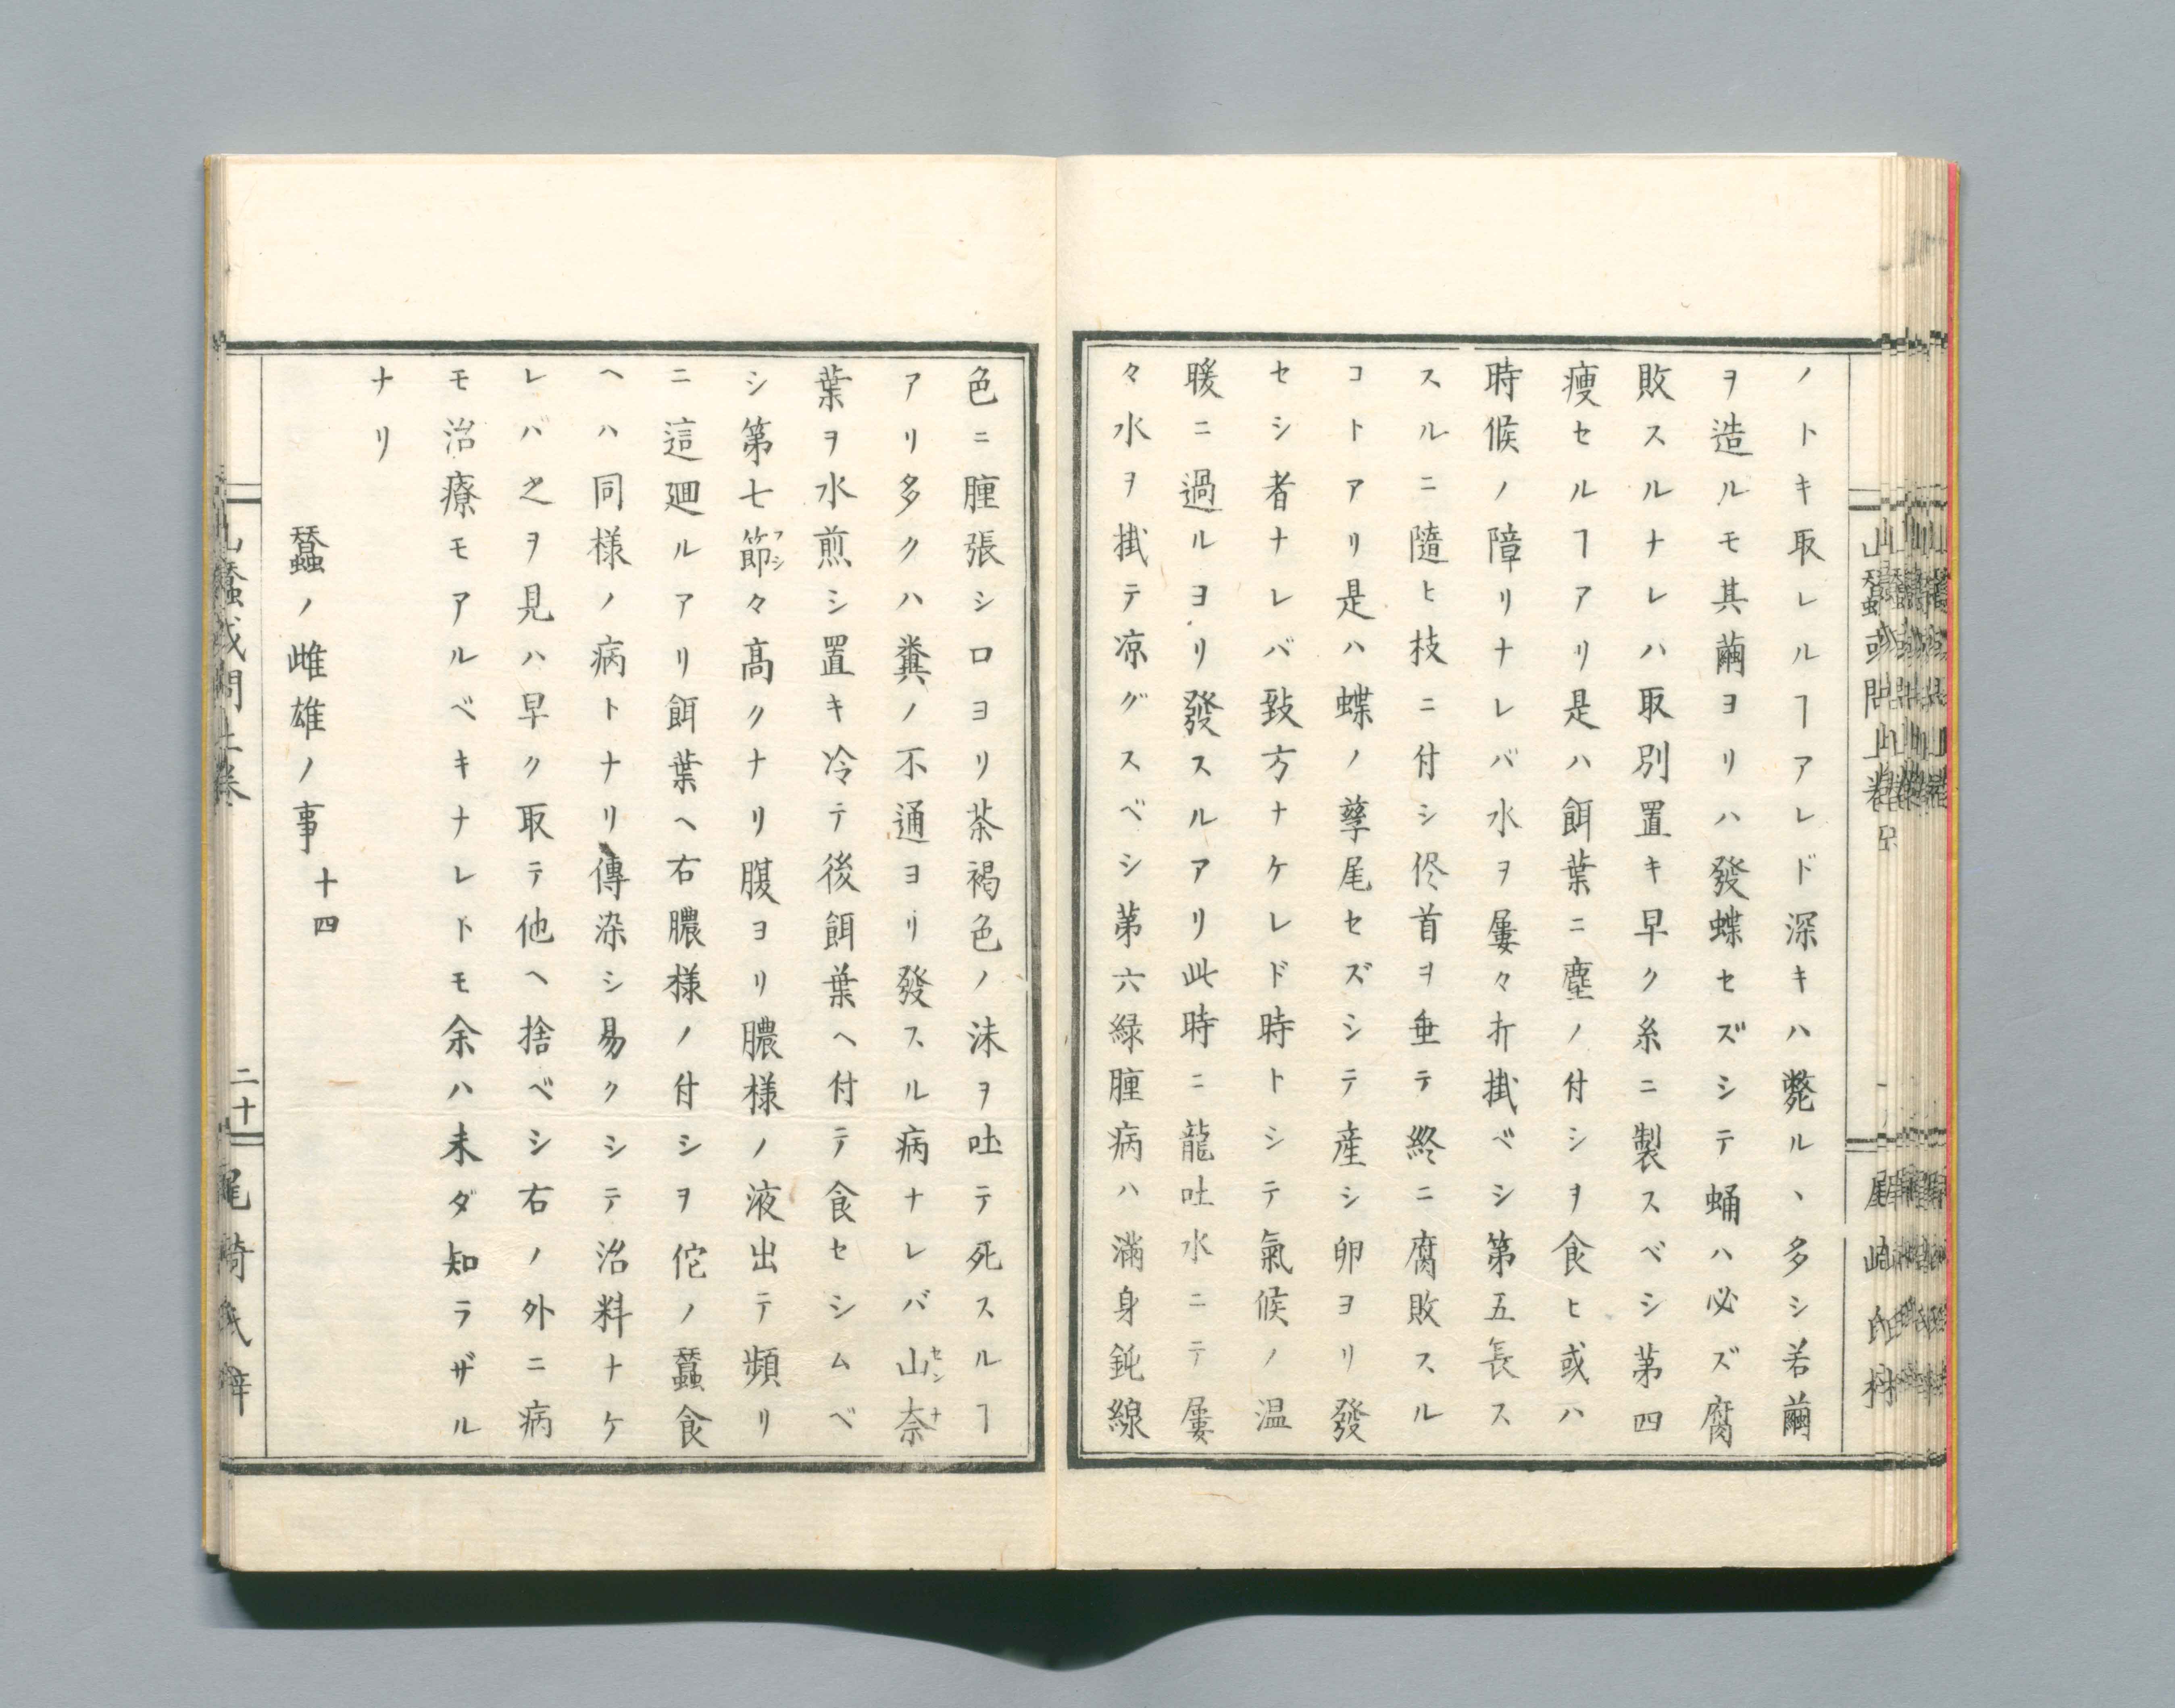 ノトキ取レルヿアレド深キハ斃ルヽ多シ若繭
ヲ造ルモ其繭ヨリハ發蝶セズシテ蛹ハ必ズ腐
敗スルナレハ取別置キ早ク糸ニ製スベシ苐四
瘦セルヿアリ是ハ餌葉ニ塵ノ付シヲ食ヒ或ハ
時候ノ障リナレバ水ヲ屢々打掛ベシ第五長ス
スルニ隨ヒ枝ニ付シ侭首ヲ垂テ終ニ腐敗スル
コトアリ是ハ蝶ノ孳尾セズシテ産シ卵ヨリ發
セシ者ナレバ致方ナケレド時トシテ氣候ノ温
暖ニ過ルヨリ發スルアリ此時ニ龍吐水ニテ屢
々水ヲ掛テ凉グスベシ苐六緑腫病ハ滿身鈍線
色ニ腫張シロヨリ茶褐色ノ沫ヲ吐テ死スルヿ
アリ多クハ糞ノ不通ヨリ發スル病ナレバ山奈
葉ヲ水煎シ置キ冷テ後餌葉ヘ付テ食セシムベ
シ第七節々髙クナリ腹ヨリ膿様ノ液出テ頻リ
ニ這廽ルアリ餌葉ヘ右膿様ノ付シヲ佗ノ蠶食
ヘハ同様ノ病トナリ傳染シ易クシテ治料ナケ
レバ之ヲ見ハ早ク取テ他ヘ捨ベシ右ノ外ニ病
モ治療モアルベキナレトモ余ハ未ダ知ラザル
ナリ
蠶ノ雌雄ノ事 十四
山蠶或問上卷 二十 尾﨑氏梓